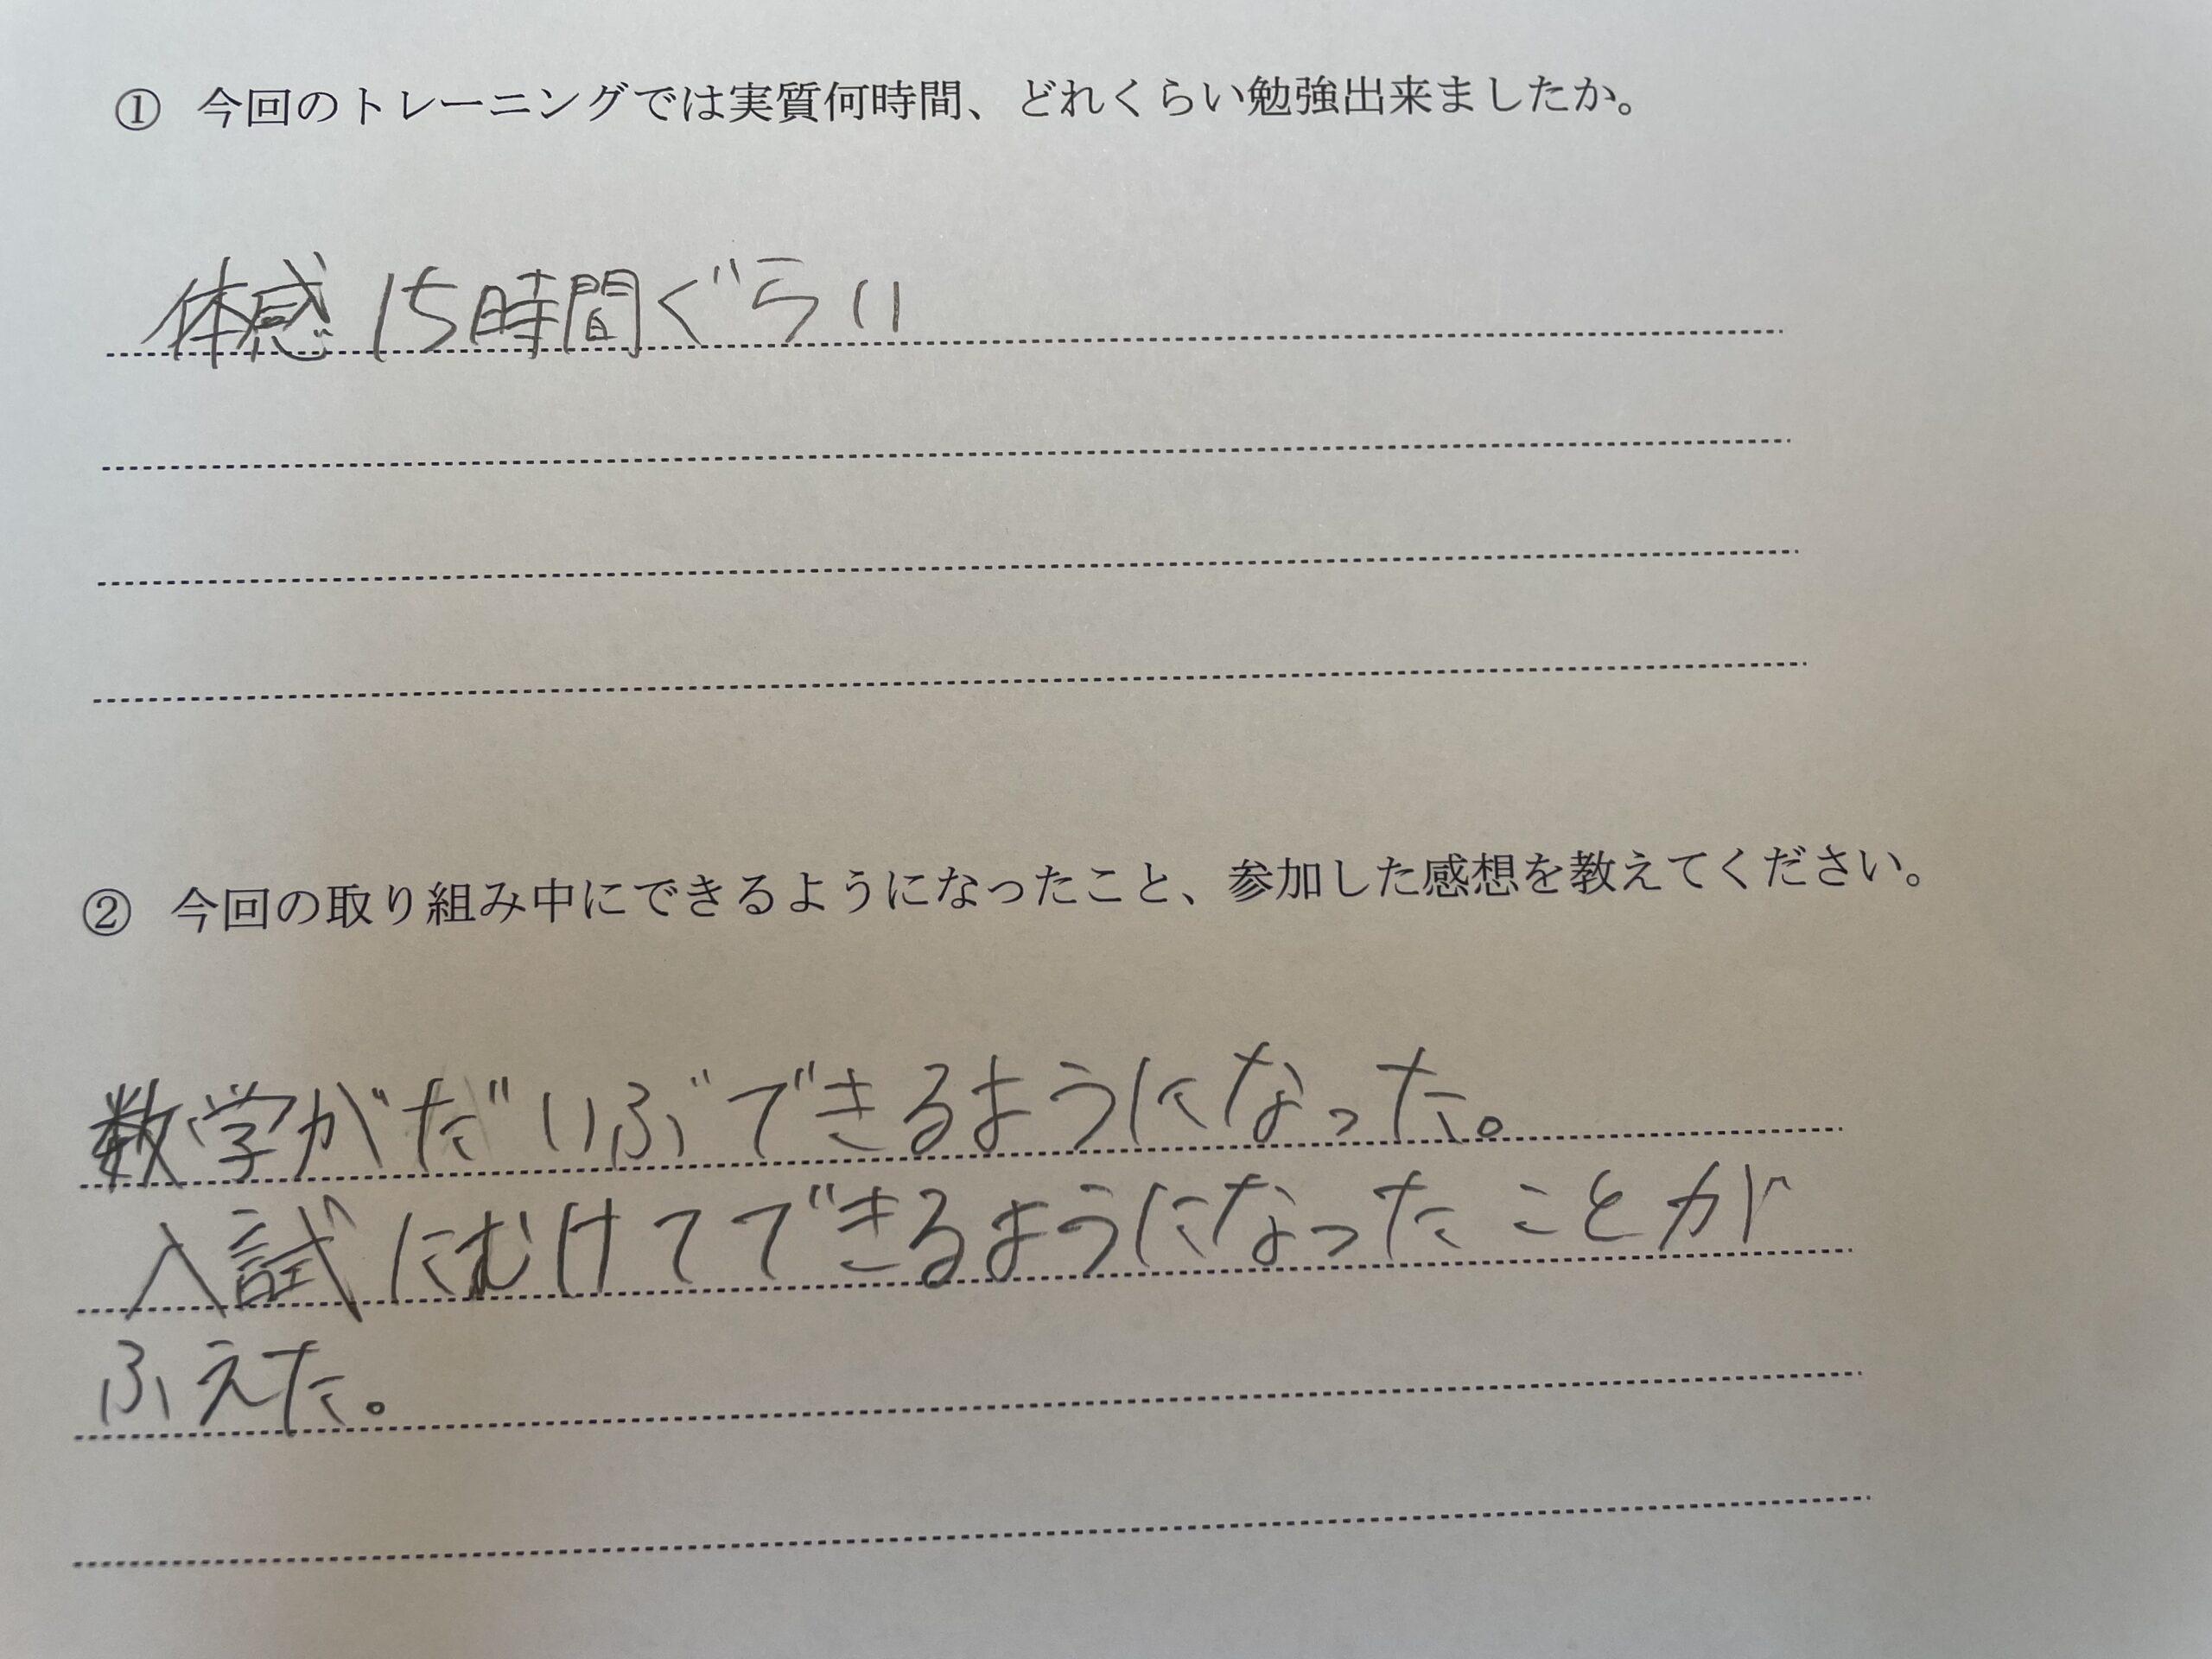 ① 今回のトレーニングでは実質何時間、どれくらい勉強出来ましたか。
体感15時間ぐらい
② 今回の取り組み中にできるようになったこと、参加した感想を教えてください。
数学がだいぶできるようになった。
入試にむけてできるようになったことが
ふえた。